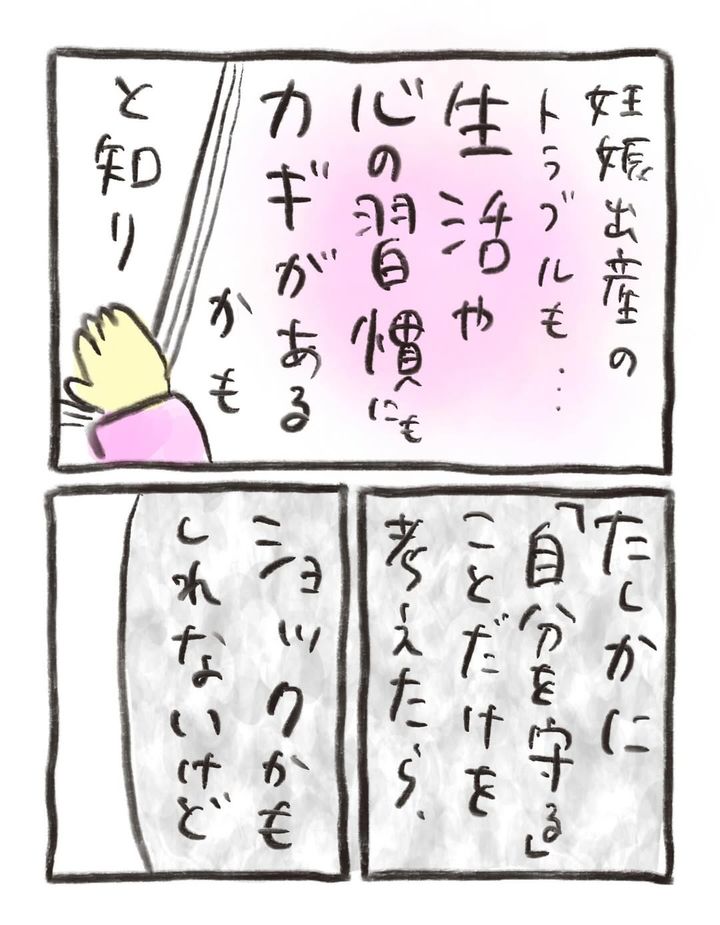 妊娠出産の
トラブルも…
生活や
心の習慣にも
カギがある
かも
と知り
たしかに
「自分を守る」
ことだけを
考えたら、
ショックかも
しれないけど